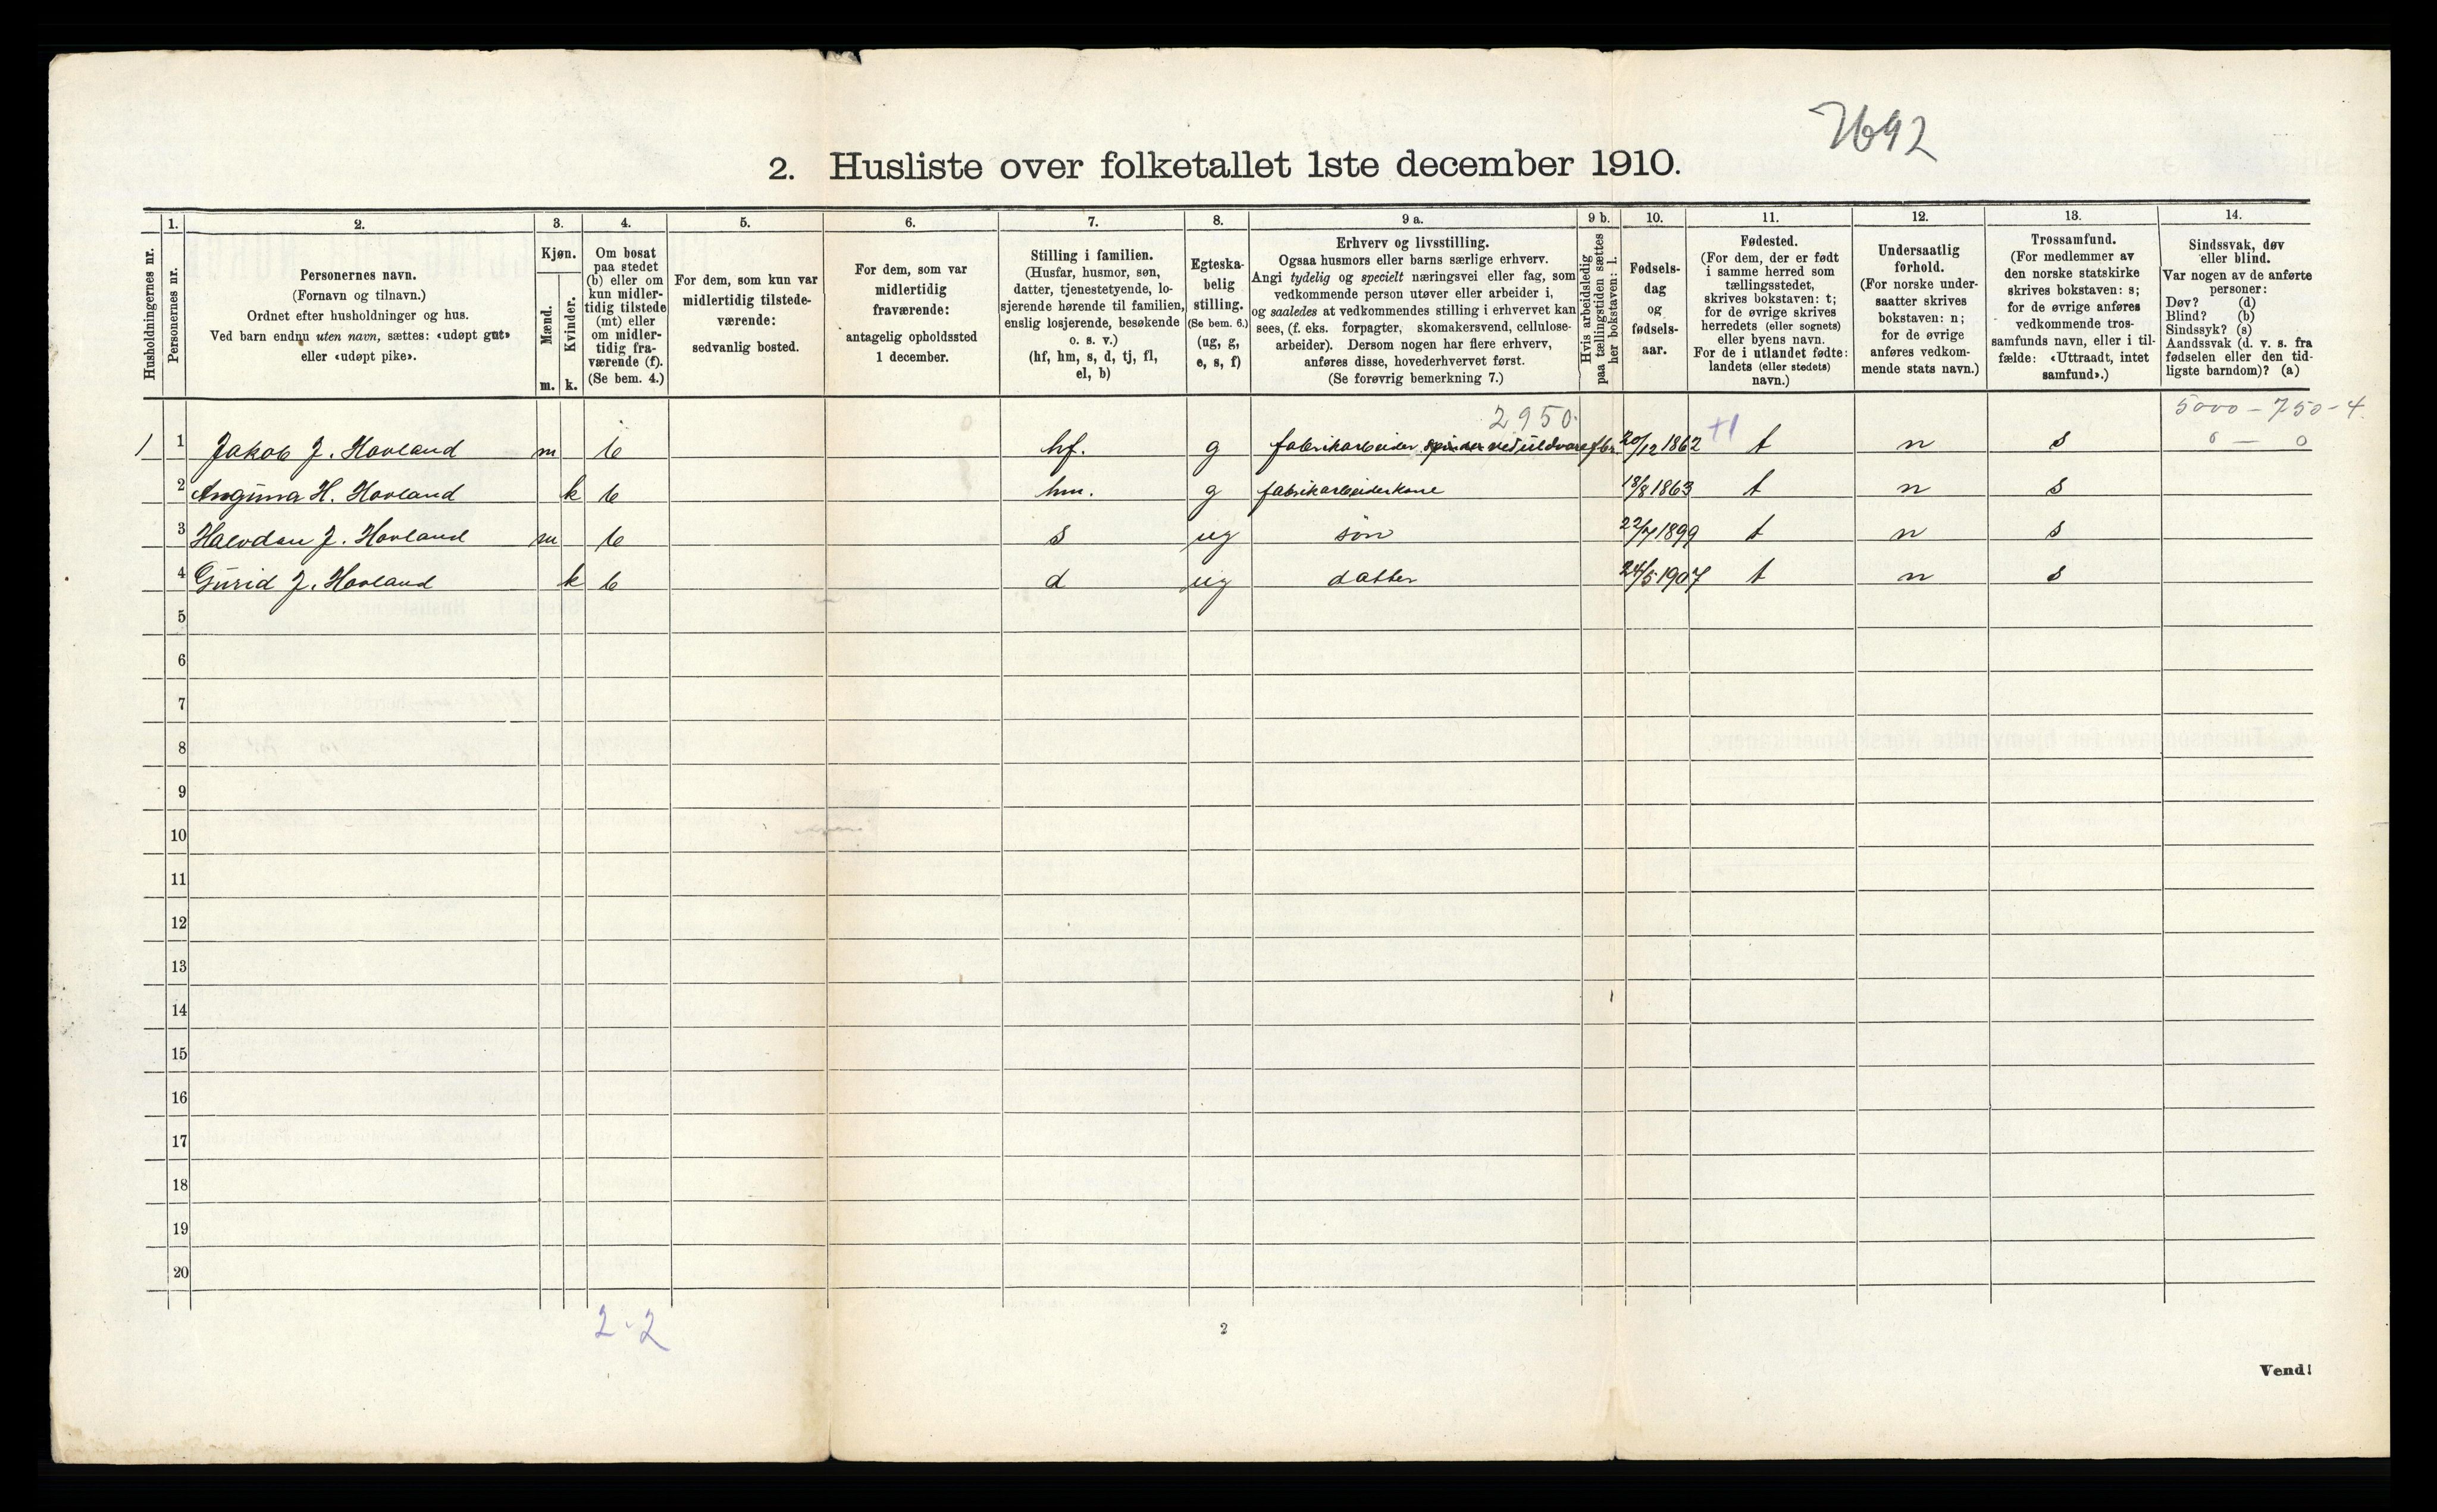 7692
2. Husliste over folketallet 1ste december 1910.
Husholdningernes nr.
1.
Personernes nr.
2.
Personernes navn.
(Fornavn og tilnavn.)
Ordnet efter husholdninger og hus.
Ved barn endnu uten navn, sættes: «udøpt gut»
eller «udøpt pike».
3.
Kjøn.
Mænd.
Kvinder.
m. k.
4.
Om bosat
paa stedet
(b) eller om
kun midler-
tidig tilstede
(mt) eller
om midler-
tidig fra-
værende (f).
(Se bem. 4.)
5.
For dem, som kun var
midlertidig tilstede-
værende:
sedvanlig bosted.
6.
For dem, som var
midlertidig
fraværende:
antagelig opholdssted
1 december.
7.
Stilling i familien.
(Husfar, husmor, søn,
datter, tjenestetyende, lo-
sjerende hørende til familien,
enslig losjerende, besøkende
o. s. v.)
(hf, hm, s, d, tj, fl,
el, b)
8.
Egteska-
belig
stilling.
(Se bem. 6.)
(ug, g,
e, s, f)
9 a.
Erhverv og livsstilling.
Ogsaa husmors eller barns særlige erhverv.
Angi tydelig og specielt næringsvei eller fag, som
vedkommende person utøver eller arbeider i,
og saaledes at vedkommendes stilling i erhvervet kan
sees, (f. eks. forpagter, skomakersvend, cellulose-
arbeider). Dersom nogen har flere erhverv,
anføres disse, hovederhvervet først.
(Se forøvrig bemerkning 7.)
9 b.
Hvis arbeidsledig
paa tællingstiden sættes
her bokstaven: l.
10.
Fødsels-
dag
og
fødsels-
aar.
11.
Fødested.
(For dem, der er født
i samme herred som
tællingsstedet,
skrives bokstaven: t;
for de øvrige skrives
herredets (eller sognets)
eller byens navn.
For de i utlandet fødte:
landets (eller stedets)
navn.)
12.
Undersaatlig
forhold.
(For norske under-
saatter skrives
bokstaven: n;
for de øvrige
anføres vedkom-
mende stats navn.)
13.
Trossamfund.
(For medlemmer av
den norske statskirke
skrives bokstaven: s;
for de øvrige anføres
vedkommende tros-
samfunds navn, eller i til-
fælde: «Uttraadt, intet
samfund».)
14.
Sindssvak, døv
eller blind.
Var nogen av de anførte
personer:
Døv? (d)
Blind? (b)
Sindssyk? (s)
Aandssvak (d. v. s. fra
fødselen eller den tid-
ligste barndom)? (a)
2950. 5000 - 750 - 4
1 1 Jakob J. Hovland m b hf. g fabrikarbeider, spinder ved uldvarefbr. 20/12 1862 t n s 0 — 0
2 Angima H. Hovland k b hm. g fabrikarbeiderkone 18/8 1863 t n s
3 Halvdan J. Hovland m b s ug søn 22/7 1899 t n s
4 Gurid J. Hovland k b d ug datter 24/5 1907 t n s
5
6
7
8
9
10
11
12
13
14
15
16
17
18
19
20
2-2
2
Vend!